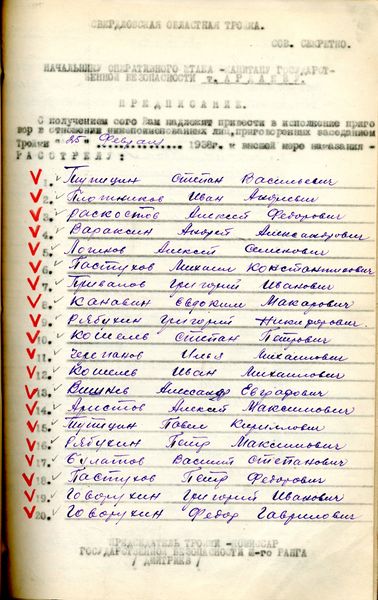 СВЕРДЛОВСКАЯ ОБЛАСТНАЯ ТРОЙКА.
СОВ. СЕКРЕТНО.
НАЧАЛЬНИКУ ОПЕРАТИВНОГО ШТАБА - КАПИТАНУ ГОСУДАРСТ-
ВЕННОЙ БЕЗОПАСНОСТИ т.
ПРЕДПИСАНИЕ.
С получением сего Вам надлежит привести в исполнение приго
вор в отношении нижепоименованных лиц, приговоренных заседанием
Тройки "25" Февраля 1938г. к высшей мере наказания -
РАССТРЕЛУ:
1. Тупицин Степан Васильевич
2. Плотников Иван Андреевич
3. Раскостов Алексей Федорович
4. Вараксин Андрей Александрович
5. Логинов Алексей Семенович
6. Пастухов Михаил Константинович
7. Привалов Григорий Иванович
8. Канавин Евдоким Макарович
9. Рябухин Григорий Никифорович
10. Кошелев Степан Петрович
11. Черепанов Илья Михайлович
12. Кошелев Иван Михайлович
13. Вишнев Александр Евграфович
14. Аристов Алексей Максимович
15. Тупицин Павел Кириллович
16. Рябухин Петр Максимович
17. Булатов Василий Степанович
18. Пастухов Петр Федорович
19. Говорухин Григорий Иванович
20. Говорухин Федор Гаврилович
ПРЕДСЕДАТЕЛЬ ТРОЙКИ - КОМИССАР
ГОСУДАРСТВЕННОЙ БЕЗОПАСНОСТИ 3-го РАНГА
/ДМИТРИЕВ/